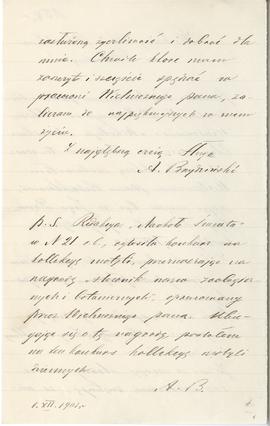 życzliwość i dobroć dla
mnie. Chwile które mam
zaszczyt i szczęście spędzać na
pracowni Wielmożnego pana, za-
liczam do najpiękniejszych w mem
życiu.
Z najgłębszą czcią. Sługa
A.
p. S. Redakcya, Naokoło świata
w N 21 o b, ogłosiła konkurs na
kollekcyę motyli, przeznaczając na
nagrodę słownik nazw zoologicz
nych i botanicznych, opracowany
przez Wielmożnego pana. Ubie-
gając się o tę nagrodę posłałem
na ten konkurs kollekcyę motyli
A. B.
1. XII. 1901 r